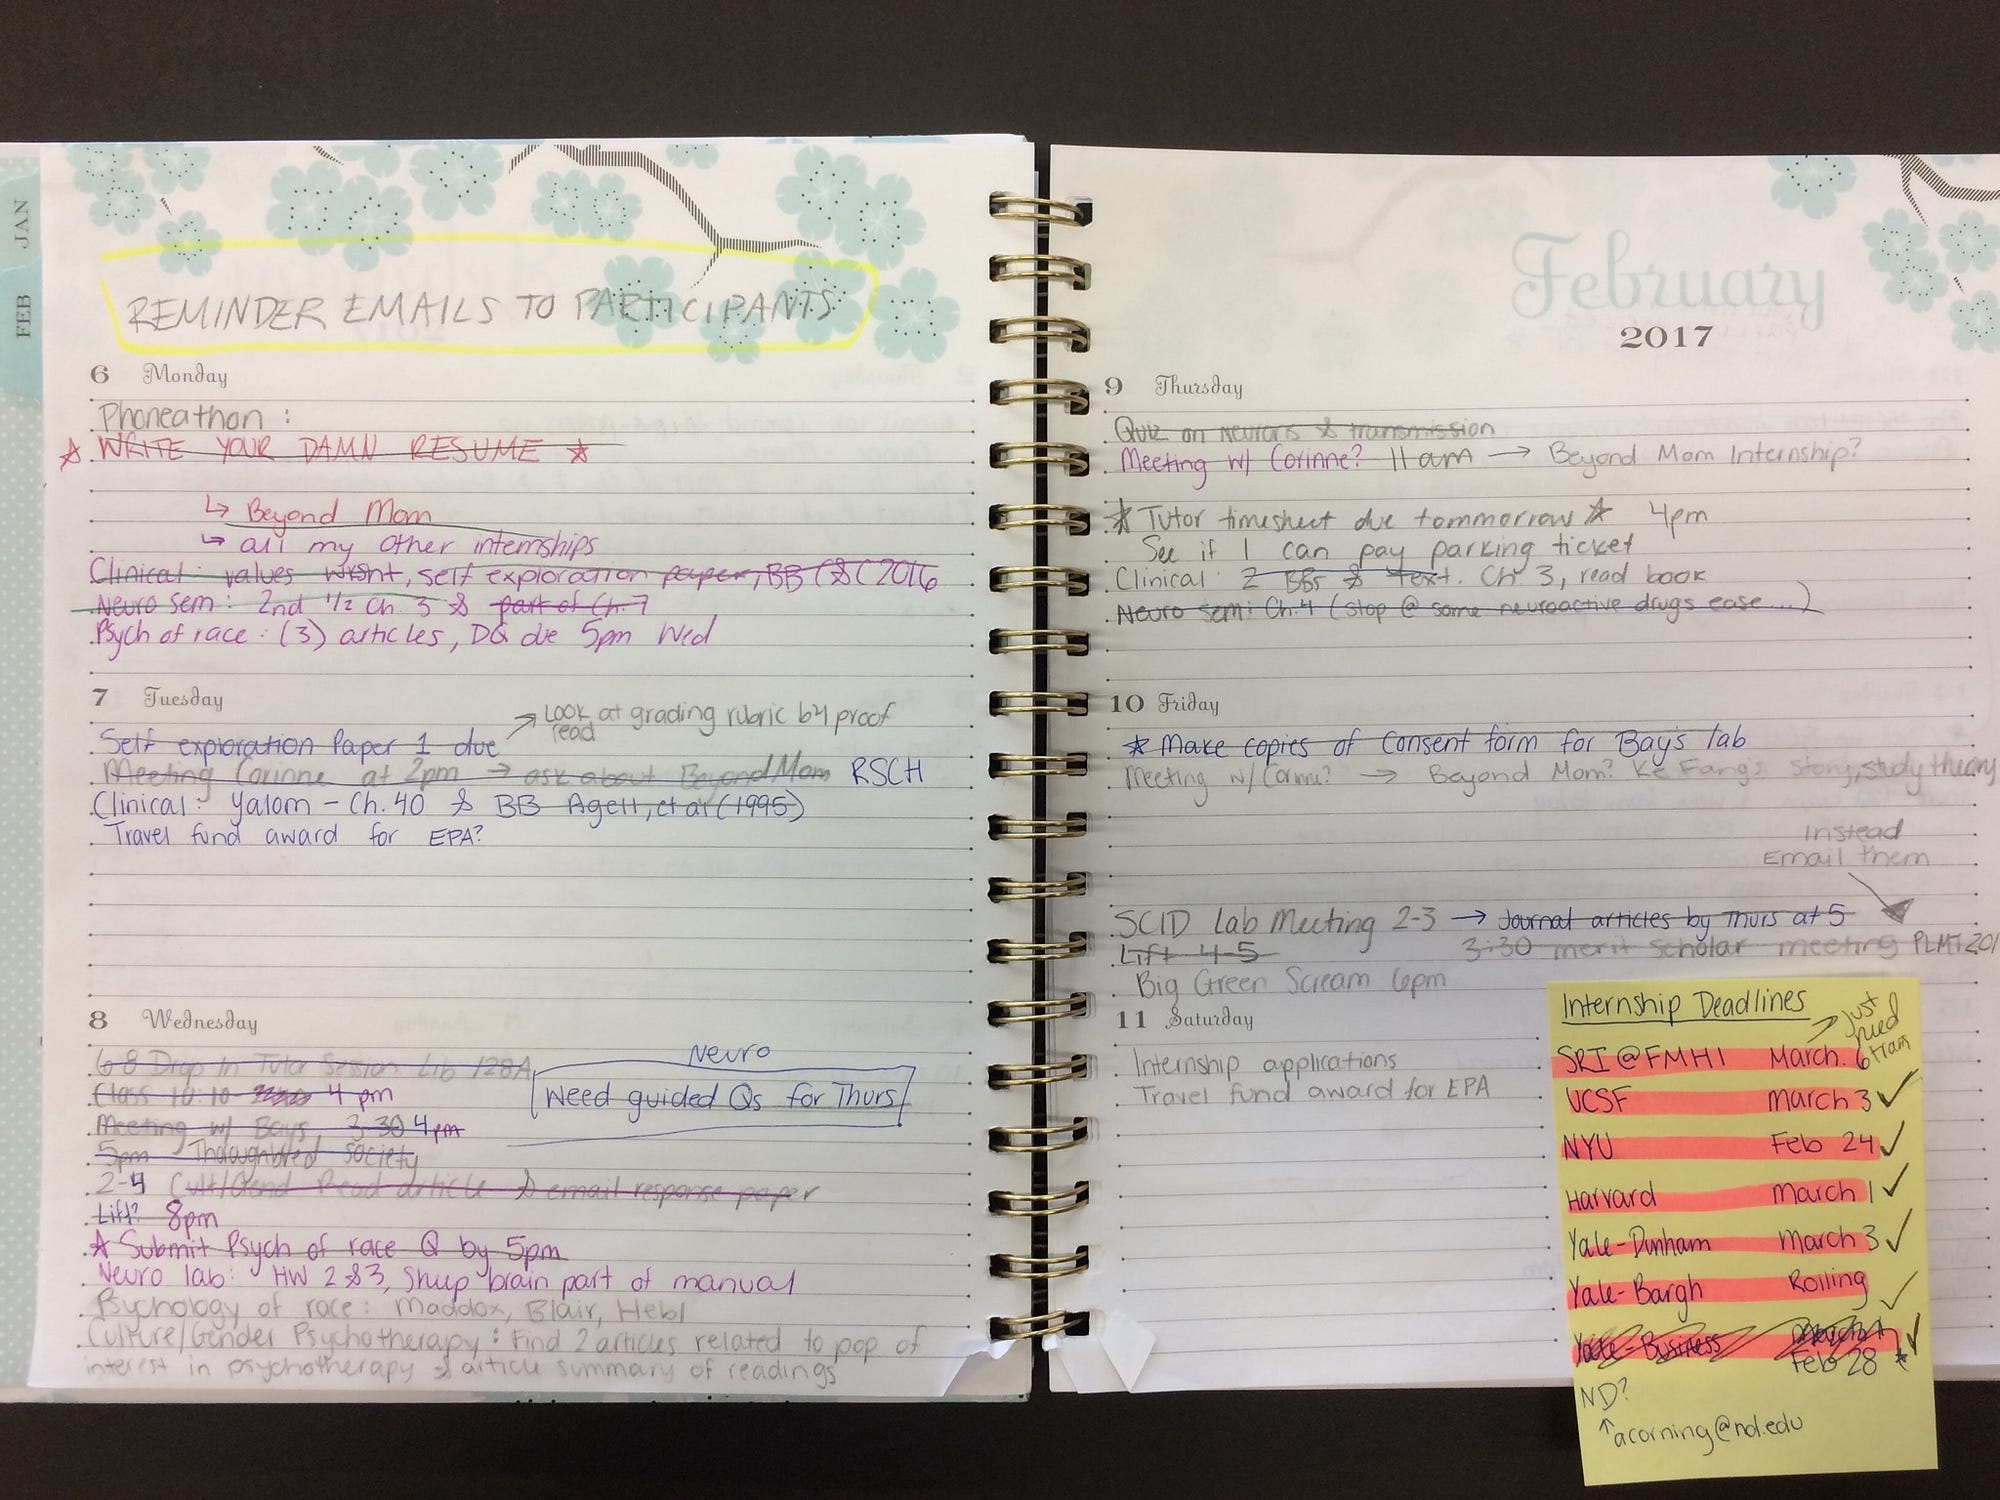 JAN
FEB
REMINDER EMAILS TO PARTICIPANTS
6 Monday
Phoneathon:
☆ WRITE YOUR DAMN RESUME ☆
↳ Beyond Mom
↳ all my other internships
Clinical: values wksht, self exploration paper, BB CSC 2016
Neuro sem: 2nd 1/2 Ch. 3 & part of Ch. 7
Psych of race: (3) articles, DQ due 5pm Wed
7 Tuesday
→ Look at grading rubric b4 proof
read
Self exploration Paper 1 due
Meeting Corinne at 2pm → ask about Beyond Mom RSCH
Clinical: Yalom - Ch. 40 & BB Agett, et al (1995)
Travel fund award for EPA?
8 Wednesday
6-8 Drop In Tutor Session Lib 128A
Neuro
Need guided Qs for Thurs
Class 10:10 4 pm
Meeting w/ Bays 3:30 4pm
5pm Thoroughbred society
2-4 Cult/Gend Read article & email response paper
Lift? 8pm
☆ Submit Psych of race Q by 5pm
Neuro lab: HW 2 & 3, Shup brain part of manual
Psychology of race: Maddox, Blair, Hebl
Culture/Gender Psychotherapy: Find 2 articles related to pop of
interest in psychotherapy & article summary of readings
February
2017
9 Thursday
Quiz on neurons & transmission
Meeting w/ Corinne? 11am → Beyond Mom Internship?
☆ Tutor timesheet due tommorrow ☆ 4pm
See if I can pay parking ticket
Clinical: 2 BBs & text. Ch 3, read book
Neuro sem: Ch. 4 (stop @ some neuroactive drugs ease...)
10 Friday
☆ Make copies of consent form for Bay's lab
Meeting w/ Corinne? → Beyond Mom? Ke Fang's story, study theory
Instead
Email them
SCID Lab Meeting 2-3 → Journal articles by Thurs at 5
Lift 4-5 3:30 merit scholar meeting PLMT 201
Big Green Scream 6pm
11 Saturday
Internship applications
Travel fund award for EPA
Internship Deadlines
→ Just need
tran
SRI @ FMHI March. 6
UCSF March 3 ✓
NYU Feb 24 ✓
Harvard March 1 ✓
Yale-Dunham March 3 ✓
Yale-Bargh Rolling ✓
Yale-Business March 1 ✓
Feb 28 *
ND?
↑ acorning@nd.edu